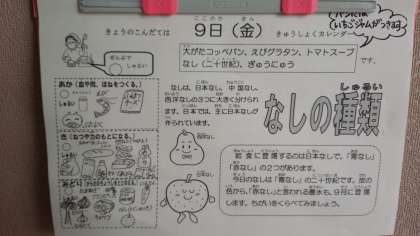 パンには
いちごジャムがつきます。
きょうのこんだては
９日（金）
きゅうしょくカレンダー
大がたコッペパン、えびグラタン、トマトスープ
なし（二十世紀）、ぎゅうにゅう
です。
ぜんぶで
しゅるい
なしは、日本なし、中国なし、
西洋なしの３つに大きく分けられ
ます。日本では、主に日本なしが
作られています。
なしの種類
しゅるい
あか（血や肉、ほねをつくる。）
西洋なし
日本なし
給食に登場するのは日本なしで、「青なし」
「赤なし」の２つがあります。
今日のなしは「青なし」の二十世紀です。皮の
色から、「赤なし」と言われる豊水も、９月に登場
します。ちがいをくらべてみましょう。